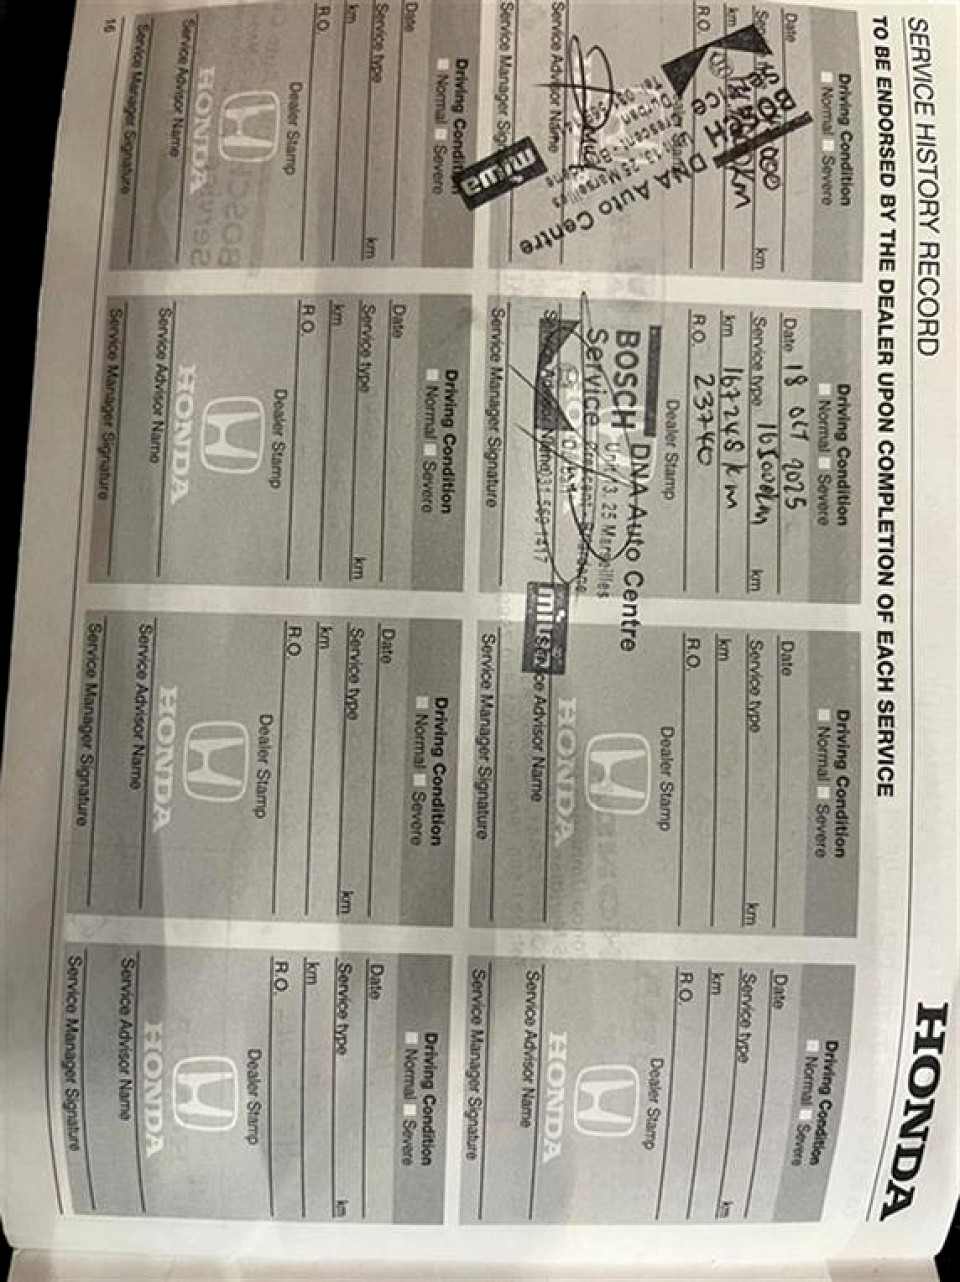 SERVICE HISTORY RECORD
HONDA
TO BE ENDORSED BY THE DEALER UPON COMPLETION OF EACH SERVICE
Driving Condition
Normal Severe
Date
km
km
R.O.
BOSCH
DNA Auto Centre
Unit 13, 25 Marseilles
Durban
Service Advisor Name
Service Manager
Driving Condition
Normal Severe
Date 18 OCT 2025
Service type 165000km km
km 167248 km
R.O. 23740
Dealer Stamp
BOSCH DNA Auto Centre
Service Unit 13, 25 Marseilles
Crescent
031 569 1417
Service Manager Signature
Driving Condition
Normal Severe
Date
Service type km
km
R.O.
Dealer Stamp
HONDA
Service Advisor Name
Service Manager Signature
Driving Condition
Normal Severe
Date
Service type km
km
R.O.
Dealer Stamp
HONDA
Service Advisor Name
Service Manager Signature
Driving Condition
Normal Severe
Date
Service type km
km
R.O.
Dealer Stamp
HONDA
Service Advisor Name
Service Manager Signature
Driving Condition
Normal Severe
Date
Service type km
km
R.O.
Dealer Stamp
HONDA
Service Advisor Name
Service Manager Signature
Driving Condition
Normal Severe
Date
Service type km
km
R.O.
Dealer Stamp
HONDA
Service Advisor Name
Service Manager Signature
Driving Condition
Normal Severe
Date
Service type km
km
R.O.
Dealer Stamp
HONDA
Service Advisor Name
Service Manager Signature
16